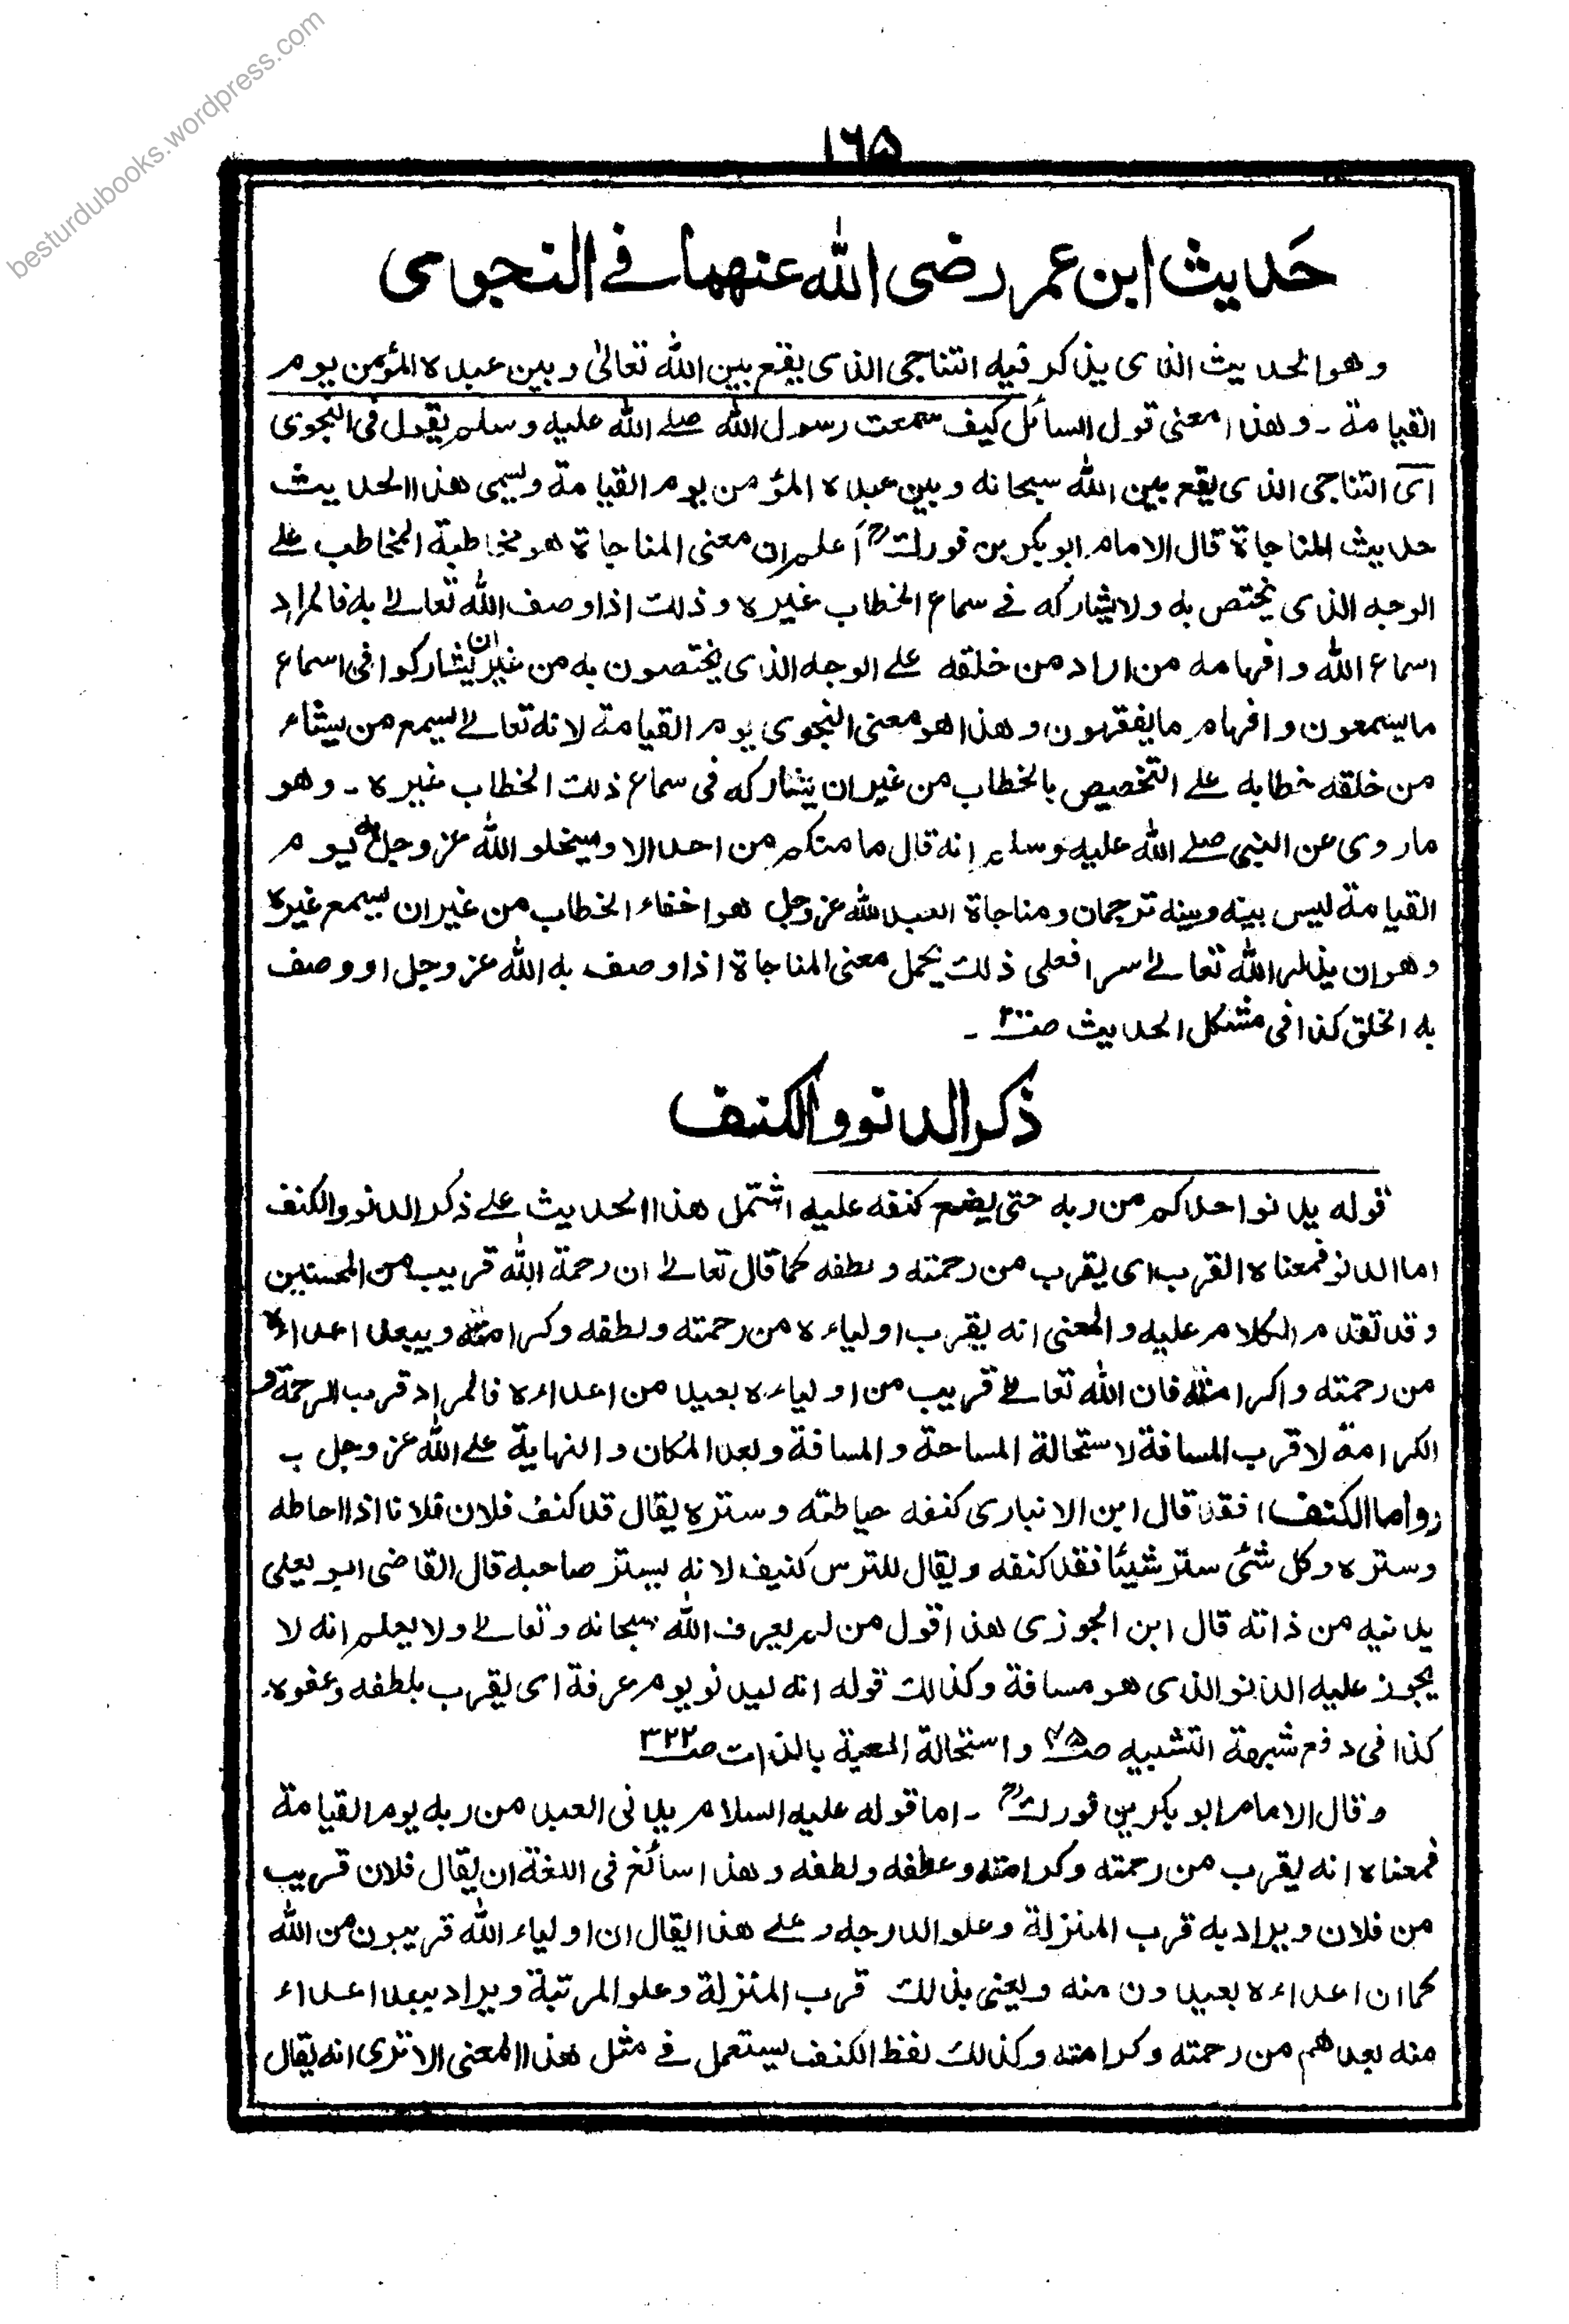 besturdubooks.wordpress.com
١٦٥
حَديث ابن عمر رضى الله عنهما فى النجوى
وهو الحديث الذى يذكر فيه التناجى الذى يقع بين الله تعالىٰ وبين عبده المؤمن يوم
القيامة ـ وهذا معنى قول السائل كيف سمعت رسول الله صلے الله عليه وسلم يقول فى النجوى
آى التناجى الذى يقع بين الله سبحانه وبين عبده المؤمن يوم القيامة ويسمى هذا الحديث
حديث المناجاة قال الامام ابوبكر بن فورك رح أعلم ان معنى المناجاة هو مخاطبة المخاطب علے
الوجه الذى يختص به ولا يشاركه فے سماع الخطاب غيره وذلك اذا وصف الله تعالے به فالمراد
اسماع الله وافهامه من اراد من خلقه علے الوجه الذى يختصون به من غير ان يشاركوا فى اسماع
ما يسمعون وافهام ما يفقهون وهذا هو معنى النجوى يوم القيامة لانه تعالے يسمع من يشاء
من خلقه خطابه علے التخصيص بالخطاب من غير ان يشاركه فى سماع ذلك الخطاب غيره ـ وهو
ماروى عن النبى صلے الله عليه وسلم انه قال ما منكم من احد الا وسيخلو الله عز وجل به يوم
القيامة ليس بينه وبينه ترجمان ومناجاة العبد لله عز وجل هو اخفاء الخطاب من غير ان يسمع غيره
وهو ان يذكر الله تعالے سرا فعلى ذلك يحمل معنى المناجاة اذا وصف به الله عز وجل او وصف
به الخلق كذا فى مشكل الحديث ـ
ذكر الدنو والكنف
قوله يدنو احدكم من ربه حتى يضع كنفه عليه اشتمل هذا الحديث علے ذكر الدنو والكنف
اما الدنو فمعناه القرب اى يقرب من رحمته ولطفه كما قال تعالے ان رحمة الله قريب من المحسنين
وقد تقدم الكلام عليه والمعنى انه يقرب اولياءه من رحمته ولطفه وكرامته ويبعد اعداءه
من رحمته واكرامته فان الله تعالے قريب من اولياءه بعيد من اعداءه فالمراد قرب الرحمة و
الكرامة لا قرب المسافة لاستحالة المساحة والمسافة وبعد المكان والنهاية علے الله عز وجل ب
(واما الكنف) فقد قال ابن الانبارى كنفه حياطته وستره يقال قد كنف فلان فلانا اذا احاطه
وستره وكل شئى ستر شيئا فقد كنفه ويقال للترس كنيف لانه يستر صاحبه قال القاضى ابو يعلى
يدنيه من ذاته قال ابن الجوزى هذا قول من لم يعرف الله سبحانه وتعالے ولا يعلم انه لا
يجوز عليه الدنو الذى هو مسافة وكذالك قوله انه ليدنو يوم عرفة اى يقرب بلطفه وعفوه
كذا فى دفع شبهة التشبيه صـ٧٥ واستحالة المعية بالذات صـ٣٢٢
وقال الامام ابوبكر بن فورك رح ـ اما قوله عليه السلام يدانى العبد من ربه يوم القيامة
فمعناه انه يقرب من رحمته وكرامته وعطفه ولطفه وهذا سائغ فى اللغة ان يقال فلان قريب
من فلان ويراد به قرب المنزلة وعلو الدرجه وعلے هذا يقال ان اولياء الله قريبون من الله
كما ان اعداءه بعيدون منه ويعنى بذالك قرب المنزلة وعلو المرتبة ويراد ببعد اعداء
منه بعدهم من رحمته وكرامته وكذلك لفظ الكنف يستعمل فے مثل هذا المعنى الا ترى انه يقال